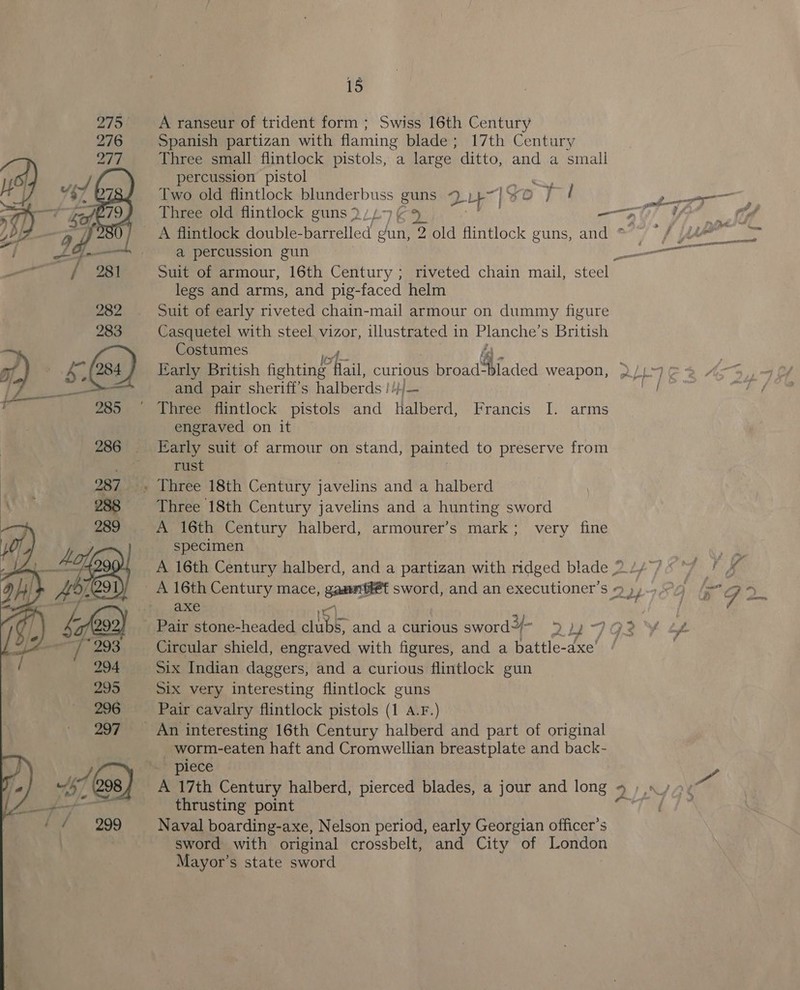 15
275 A ranseur of trident form ; Swiss 16th Century
276 Spanish partizan with flaming blade ; 17th Century
277 Three small flintlock pistols, a large ditto, and a small
percussion pistol
278 Two old flintlock blunderbuss guns
279 Three old flintlock guns
280 A flintlock double-barrelled gun, 2 old flintlock guns, and
a percussion gun
281 Suit of armour, 16th Century ; riveted chain mail, steel
legs and arms, and pig-faced helm
282 Suit of early riveted chain-mail armour on dummy figure
283 Casquetel with steel vizor, illustrated in Planche's British
Costumes
284 Early British fighting flail, curious broad-bladed weapon,
and pair sheriff's halberds
285 Three flintlock pistols and Halberd, Francis I. arms
engraved on it
286 Early suit of armour on stand, painted to preserve from
rust
287 Three 18th Century javelins and a halberd
288 Three 18th Century javelins and a hunting sword
289 A 16th Century halberd, armourer's mark ; very fine
specimen
290 A 16th Century halberd, and a partizan with ridged blade
291 A 16th Century mace, sword, and an executioner's
axe
292 Pair stone-headed clubs, and a curious sword
293 Circular shield, engraved with figures, and a battle-axe
294 Six Indian daggers, and a curious flintlock gun
295 Six very interesting flintlock guns
296 Pair cavalry flintlock pistols (1 A.F.)
297 An interesting 16th Century halberd and part of original
worm-eaten haft and Cromwellian breastplate and back-
piece
298 A 17th Century halberd, pierced blades, a jour and long
thrusting point
299 Naval boarding-axe, Nelson period, early Georgian officer's
sword with original crossbelt, and City of London
Mayor's state sword